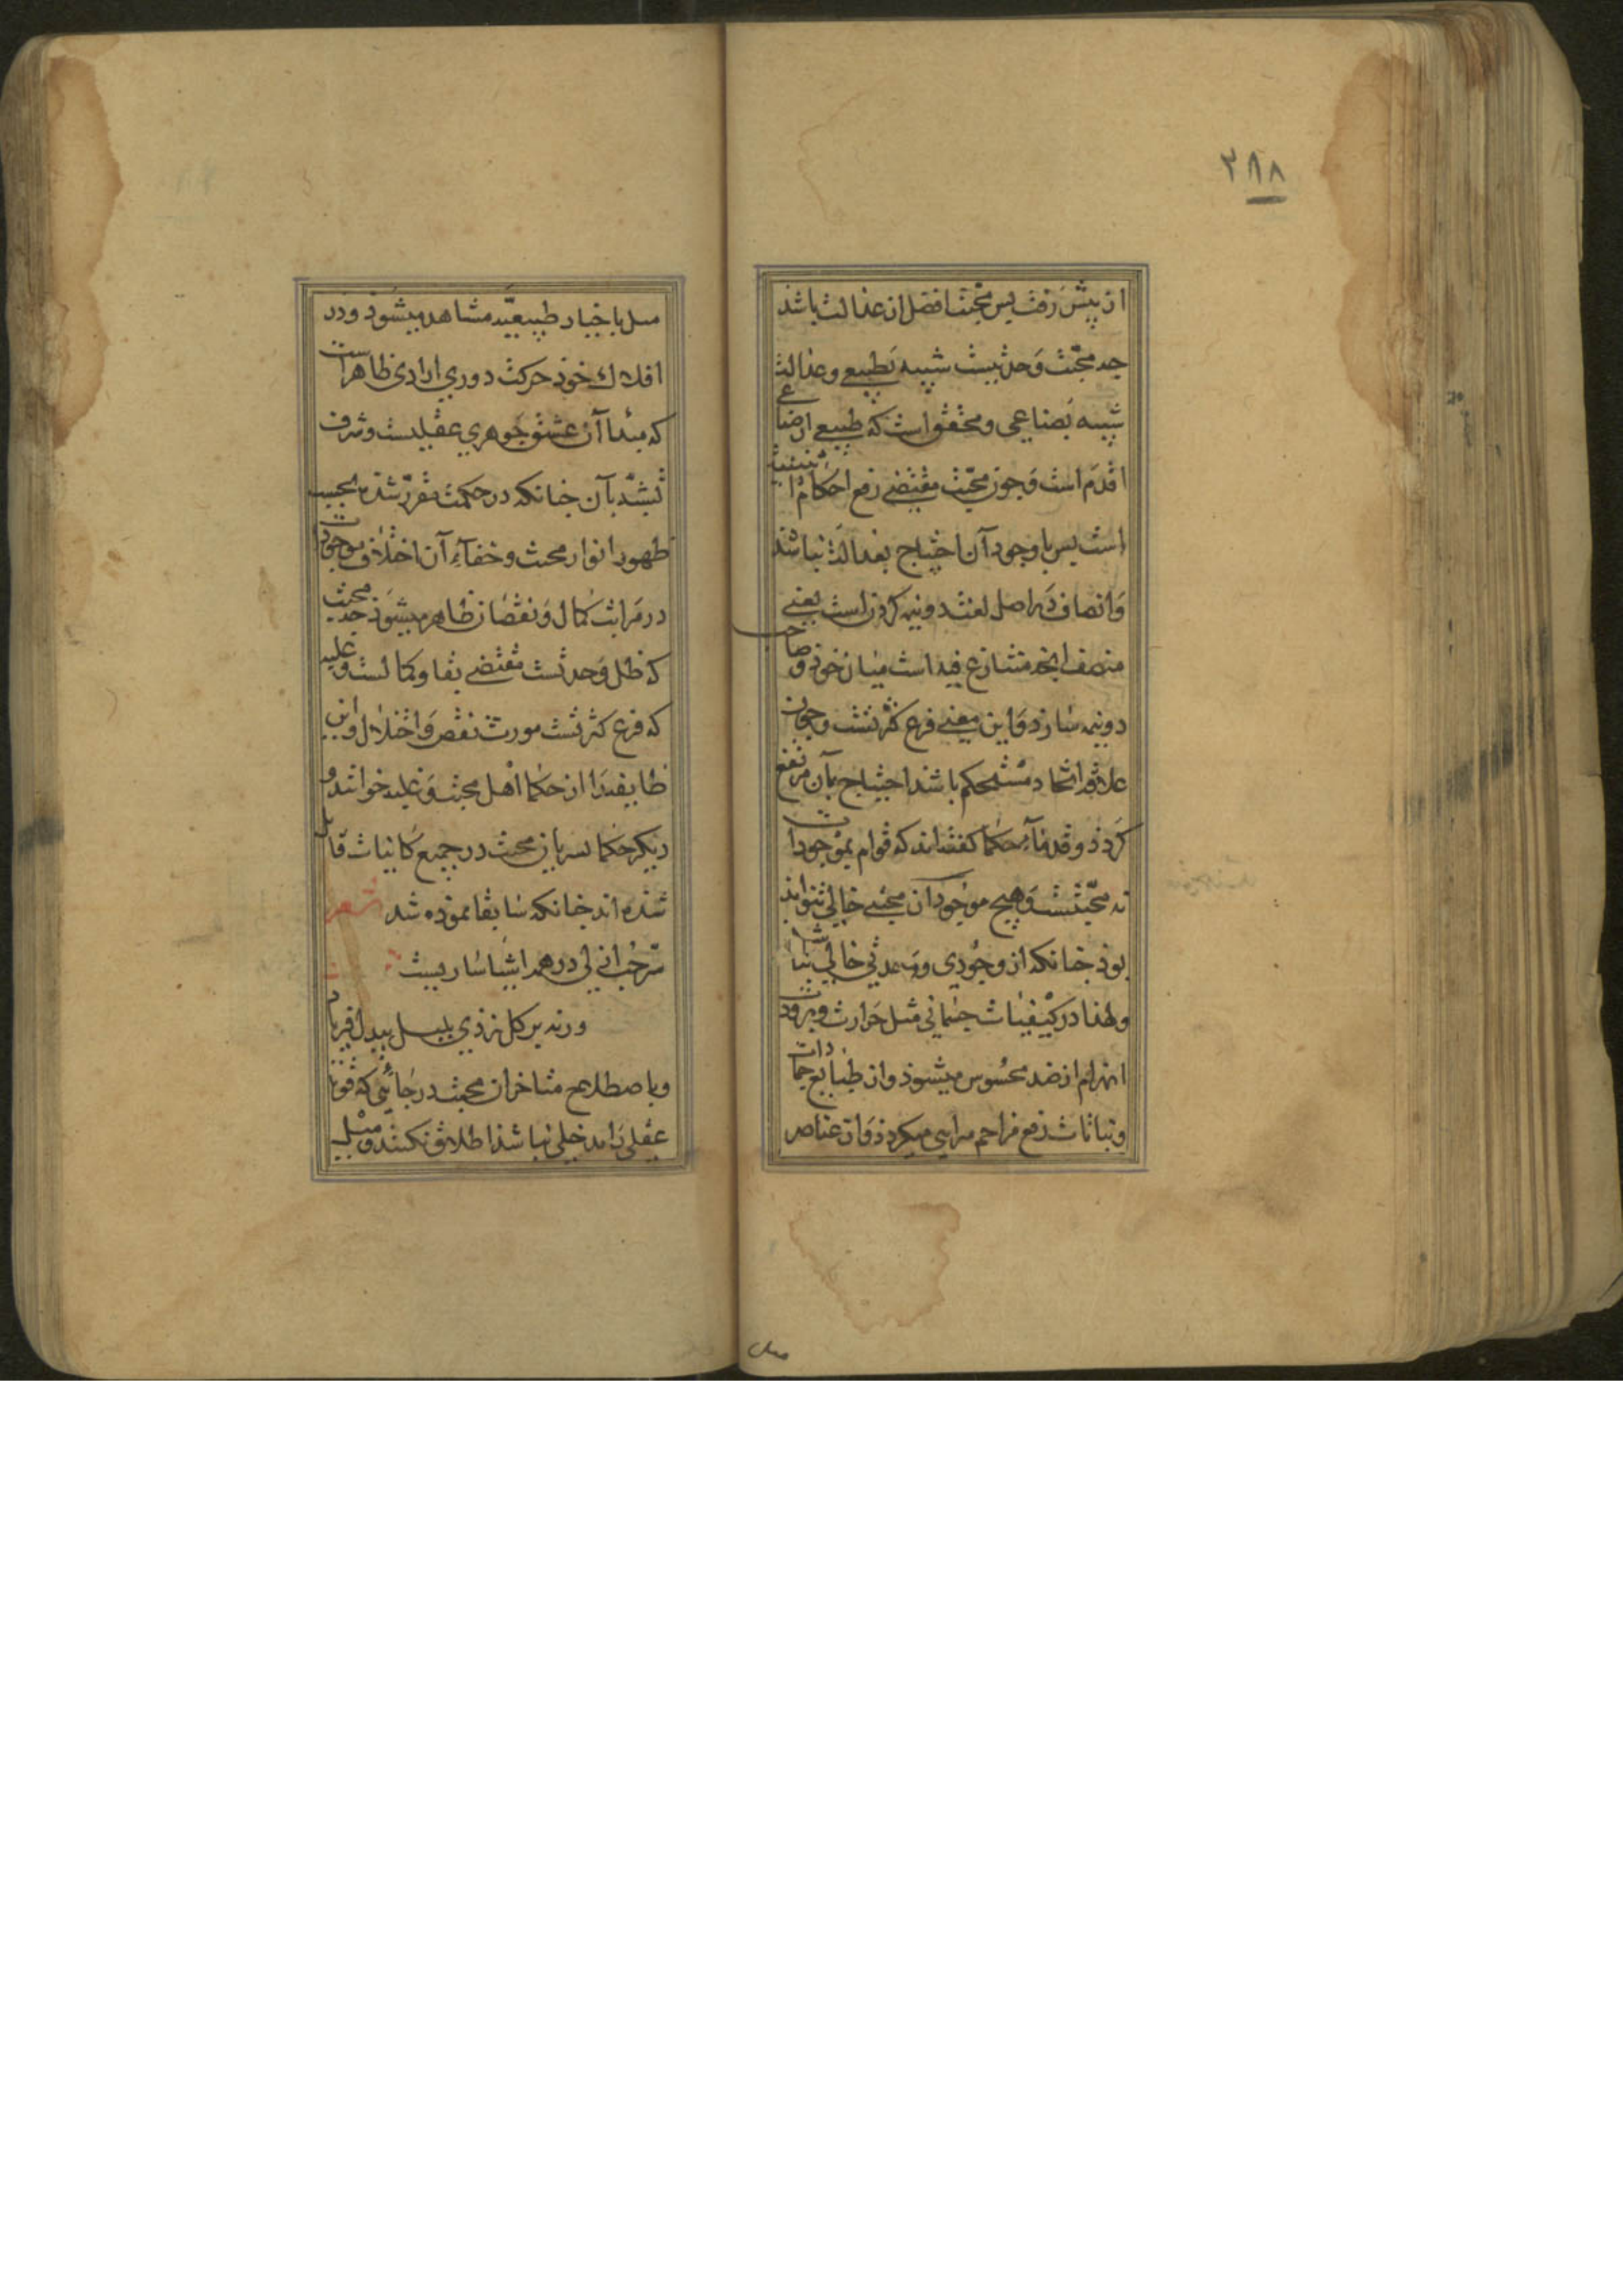 ٣٨٨
از پیش رفت پس محبت افضل از عدالت باشد
چه محبت وحدتیست شبیه بطبیعی و عدالت
شبیه بصناعی و محقق است که طبیعی از صناعی
اقدم است و چون محبت مقتضی رفع احکام اثنینیت
است پس با وجود آن احتیاج بعدالت نباشد
و انصاف در اصل لغت دو نیمه کردن است یعنی
منصف آنچه متنازع فیه است میان خود و صاحب
دو نیمه سازد و این معنی فرع کثرتست و چون
علاقه اتحاد مستحکم باشد احتیاج بآن مرتفع
کردد و قدماء حکما کفته اند که قوام موجودات
به محبتست و هیچ موجود از محبتی خالی نتواند
بود چنانکه از وجودی و وحدتی خالی نباشد
و لهذا در کیفیات جسمانی مثل حرارت و برودت
انهزام از ضد محسوس میشود و از طبایع جمادات
و نباتات دفع مزاحم مرایی میکردد و از عناصر
میل
میل باحیاز طبیعیه مشاهد میشود و در
افلاک خود حرکت دوری ارادی ظاهراست
که مبدا آن عشق جوهری عقلیست و شرف
تشبه بآن چنانکه در حکمت مقرر شده بحسب
ظهور انوار محبت و خفاء آن اختلاف موجودات
در مراتب کمال و نقصان ظاهر میشود چه محبت
که ظل وحدتست مقتضی بقا و کمالست و غلبه
که فرع کثرتست مورث نقص و اختلال و این
طایفه را از حکما اهل محبت و غلبه خوانند و
دیکر حکما بسریان محبت در جمیع کاینات قایل
شده اند چنانکه سابقا نموده شد شعر
سر حب ازلی در همه اشیا ساریست
ورنه بر کل نزدی بلبل بیدل فریاد
و باصطلاح متاخران محبت در جائی که قوت
عقلی را مدخلی نباشد اطلاق نکنند و میل